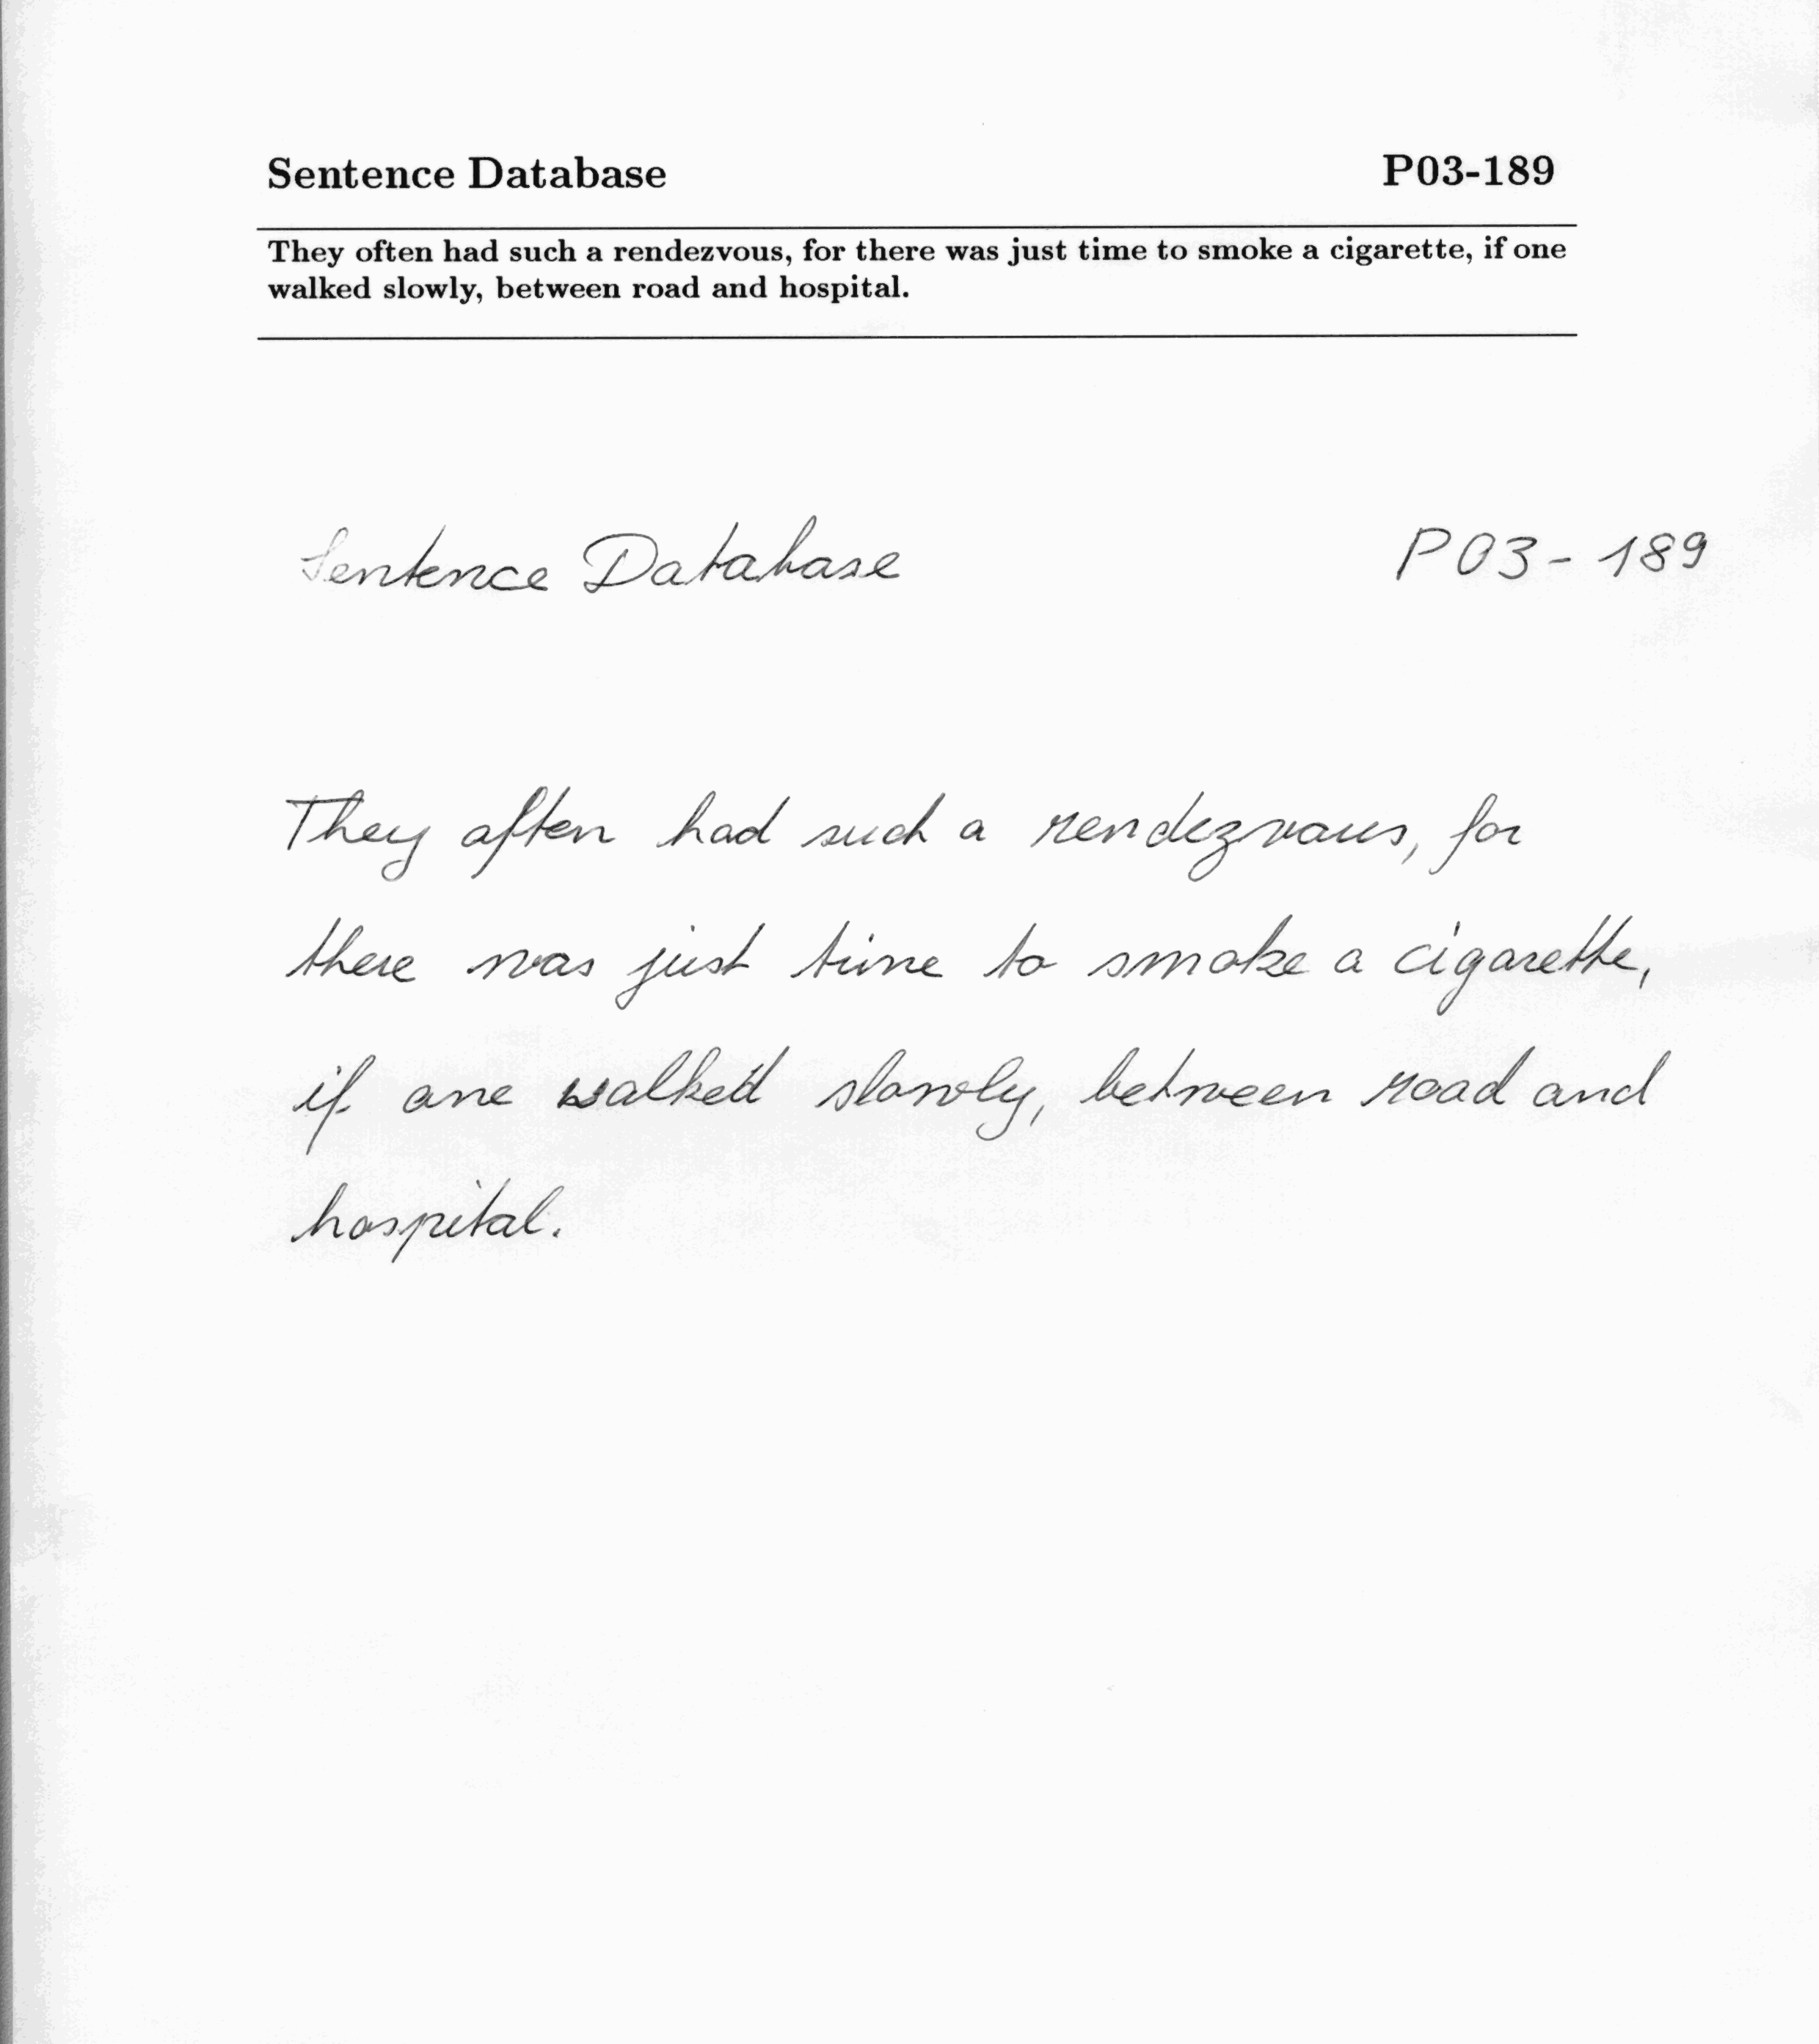 Sentence Database P03-189
They often had such a rendezvous, for there was just time to smoke a cigarette, if one
walked slowly, between road and hospital.
Sentence Database P03-189
They often had such a rendezvous, for
there was just time to smoke a cigarette,
if one walked slowly, between road and
hospital.